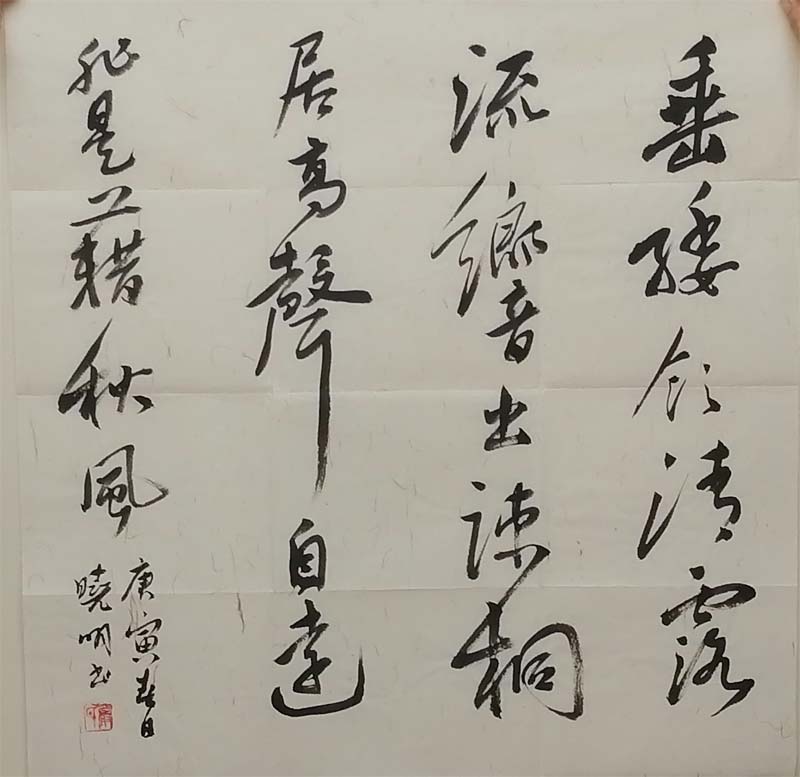 垂緌飲清露
流響出疎桐
居高聲自遠
非是藉秋風
庚寅春日
曉明书